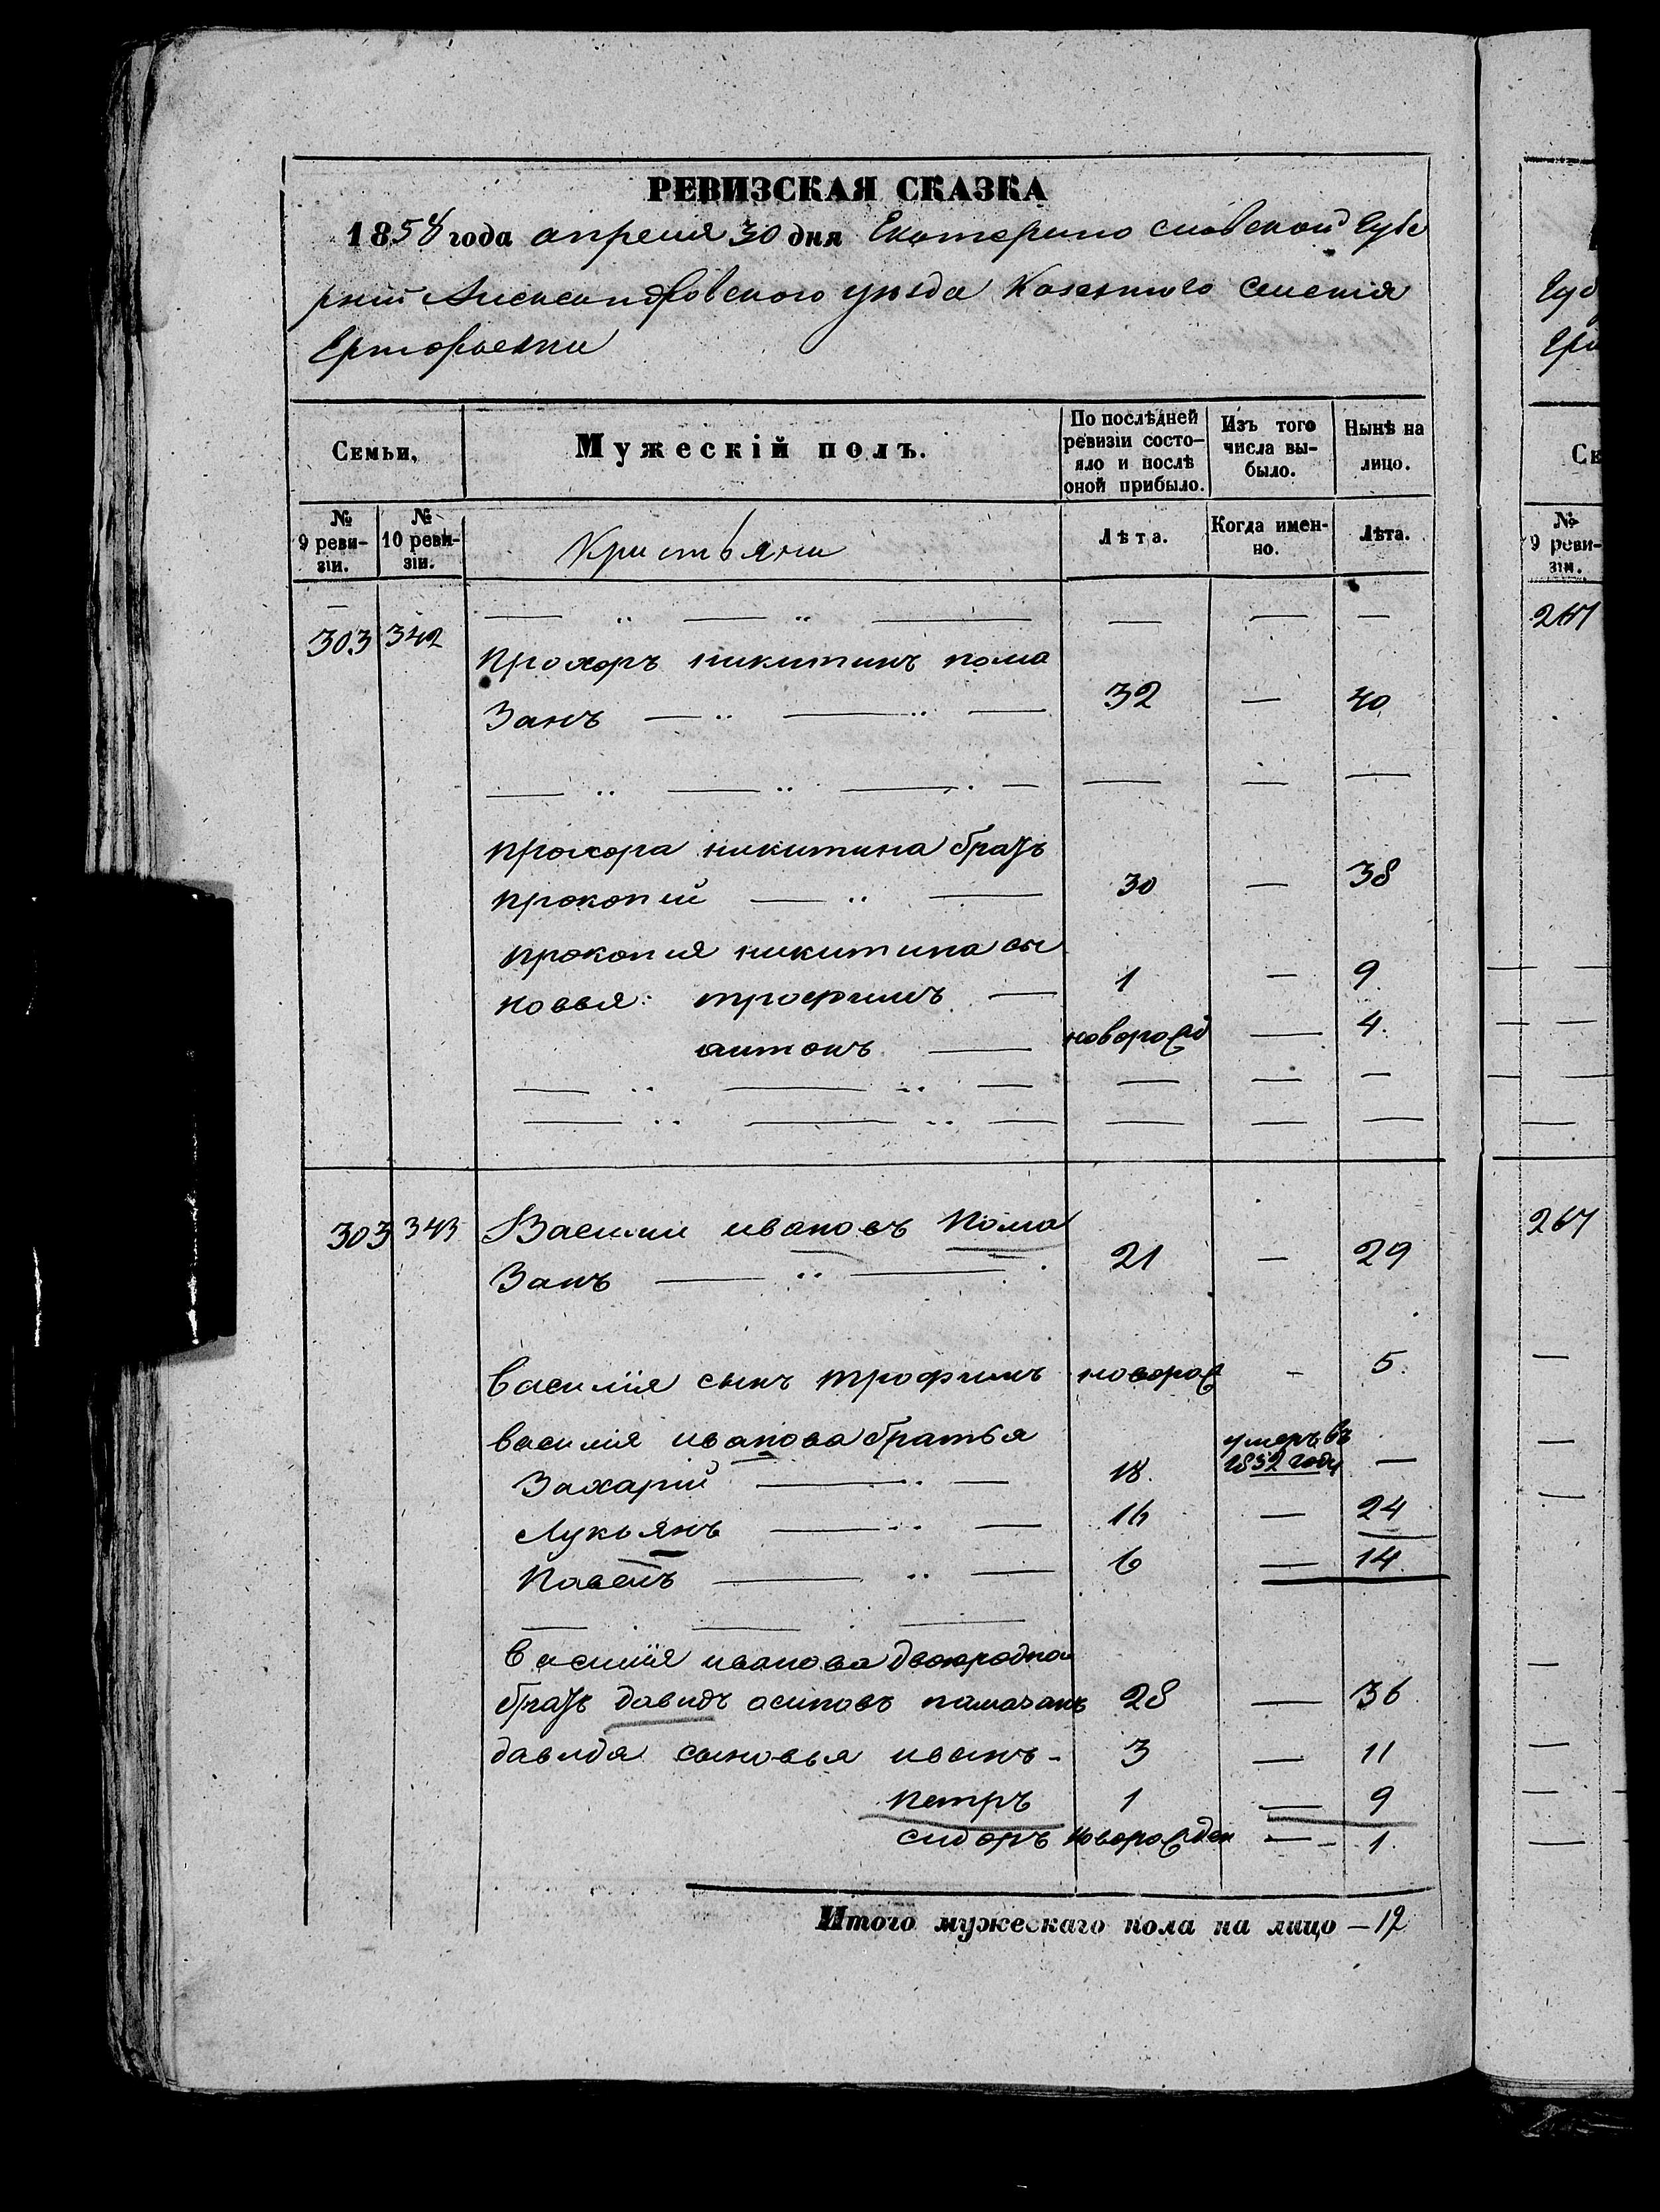 РЕВИЗСКАЯ СКАЗКА
1858 года апреля 30 дня Екатерино славской губе
рнии Александровского уезда Казенного селения
Григорьевки
Семьи. Мужескій полъ. По послѣдней ревизіи состо- яло и послѣ оной прибыло. Изъ того числа вы- было. Нынѣ на лицо.
№ 9 реви- зіи. № 10 реви- зіи. Кристьяни Лѣта. Когда имен- но. Лѣта.
303 342 Прохоръ никитинъ пома
Занъ 32 — 40
прохора никитина братъ
прокопий 30 — 38
прокопия никитина сы
новья: трофимъ 1 — 9.
антонъ новорожд — 4.
303 343 Василии ивановъ Пома
Занъ 21 — 29
василія сынъ трофимъ новорож - 5.
василия иванова братья
Захарий 18. умеръ въ 1852 году —
Лукьянъ 16 — 24
Павелъ 6 — 14.
василія иванова двоюродной
братъ давидъ осиповъ памазанъ 28 — 36
давида сыновья иванъ - 3 — 11
петръ 1 — 9
сидоръ новорожден — 1.
Итого мужескаго пола на лицо — 12
Губ
Гри
Се
№ 9 реви- зіи.
267
267